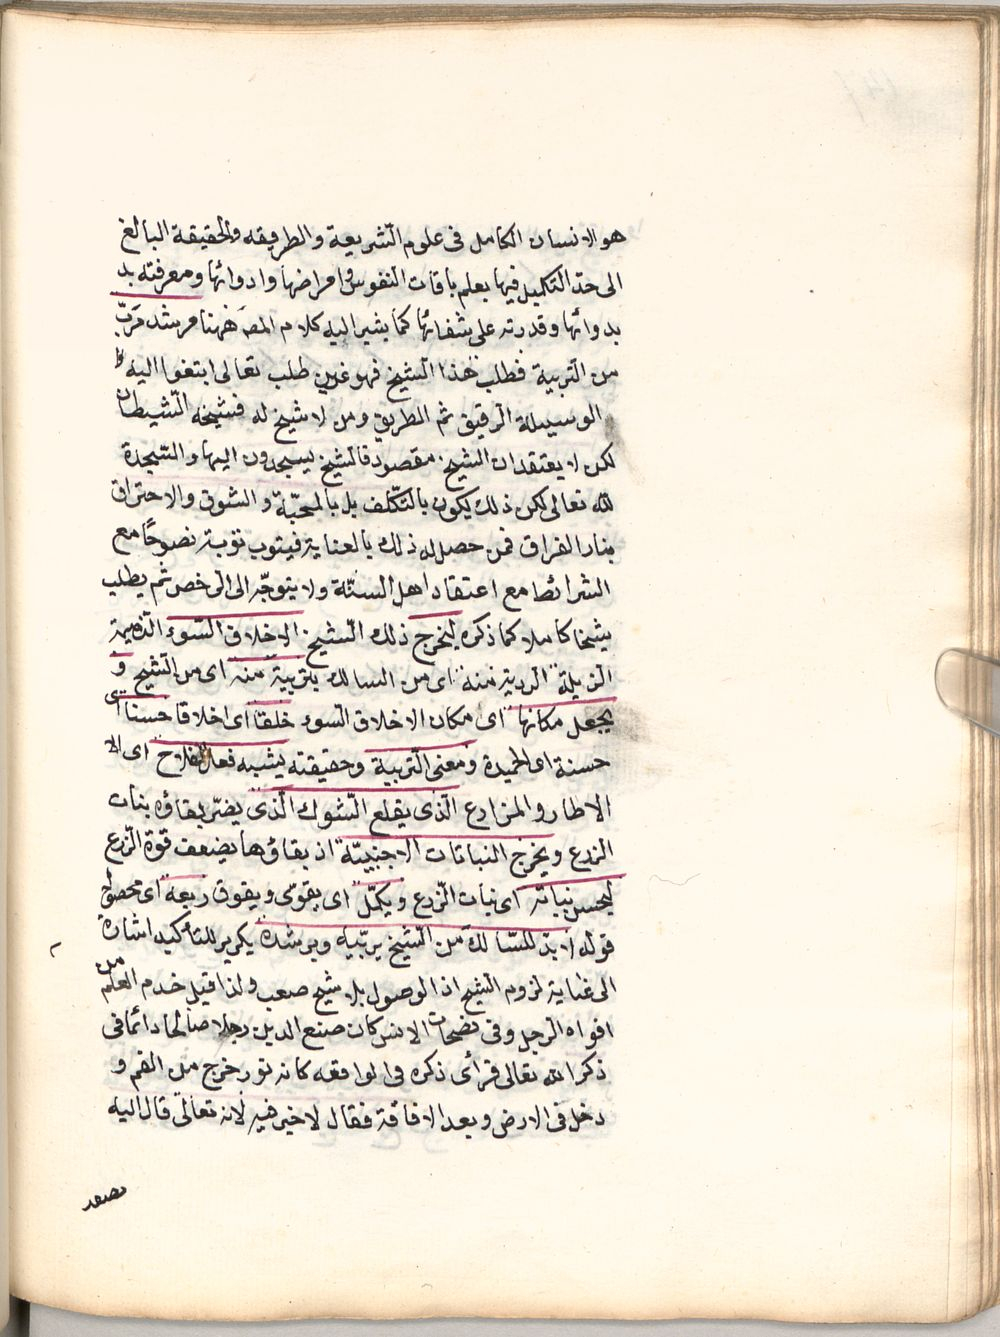 هو الانسان الكامل فى علوم الشريعة والطريقه والحقيقة البالغ
الى حدّ التكميل فيها بعلم بافات النفوس وامراضها وادوائها ومعرفته بد
بدوائها وقدرته على شفائها كما يشير اليه كلام المصَ ههنا مرشد مربّ
من التربية فطلب هذا الشيخ فهو غرين طلب تعالى ابتغوا اليه
الوسيلة الرفيق ثم الطريق ومن لا شيخ له فشيخه الشيطان
لكن لا يعتقد ان الشيخ مقصود فالشيخ يسجدون اليها والسّجدة
لله تعالى لكن ذلك يكون بالتكلّف بل بالمحبّة والشوق والاحتراق
بنار الفراق فمن حصل له ذلك بالعناية فيتوب توبة نصوحًا مع
الشرائط مع اعتقاد اهل السنّة ولا يتوجّه الى الرخص ثم يطلب
شيخا كاملا كما ذكره ليخرج ذلك الشيخ الاخلاق السّوء الذميمة
الرذيلة الردية منه اى من السالك بتربية منه اى من الشيخ و
يجعل مكانها اى مكان الاخلاق السوء خلقا اى اخلاقا حسنا اى
حسنة اى الحميدة ومعنى التربية وحقيقته يشبه فعل الفلاح اى الا
الاطار والمزارع الذى يقلع الشوك الذى يضرّ بقاؤه بنبات
الزرع ويخرج النباتات الاجنبيّة اذ بقاؤها يضعف قوة الزرع
ليحسن نباته اى نبات الزرع ويكمّل اى يقوّى ويفوق ريعه اى محصوله
قوله لا بدّ للسّالك من الشيخ يربّيه ويرشده يكرير للتأكيد اشارة
الى غناية لزوم الشيخ اذ الوصول بلا شيخ صعب ولذا قيل خدم العلم من
افواه الرجل وفى نضحات الانس كان صنع الدين رجلا صالحا دائما فى
ذكر الله تعالى فرأى ذكره فى الواقعه كانه نور خرج من الفم و
دخل فى الارض وبعد الافاقة فقال لا خير فيه لانه تعالى قال اليه
يصعد